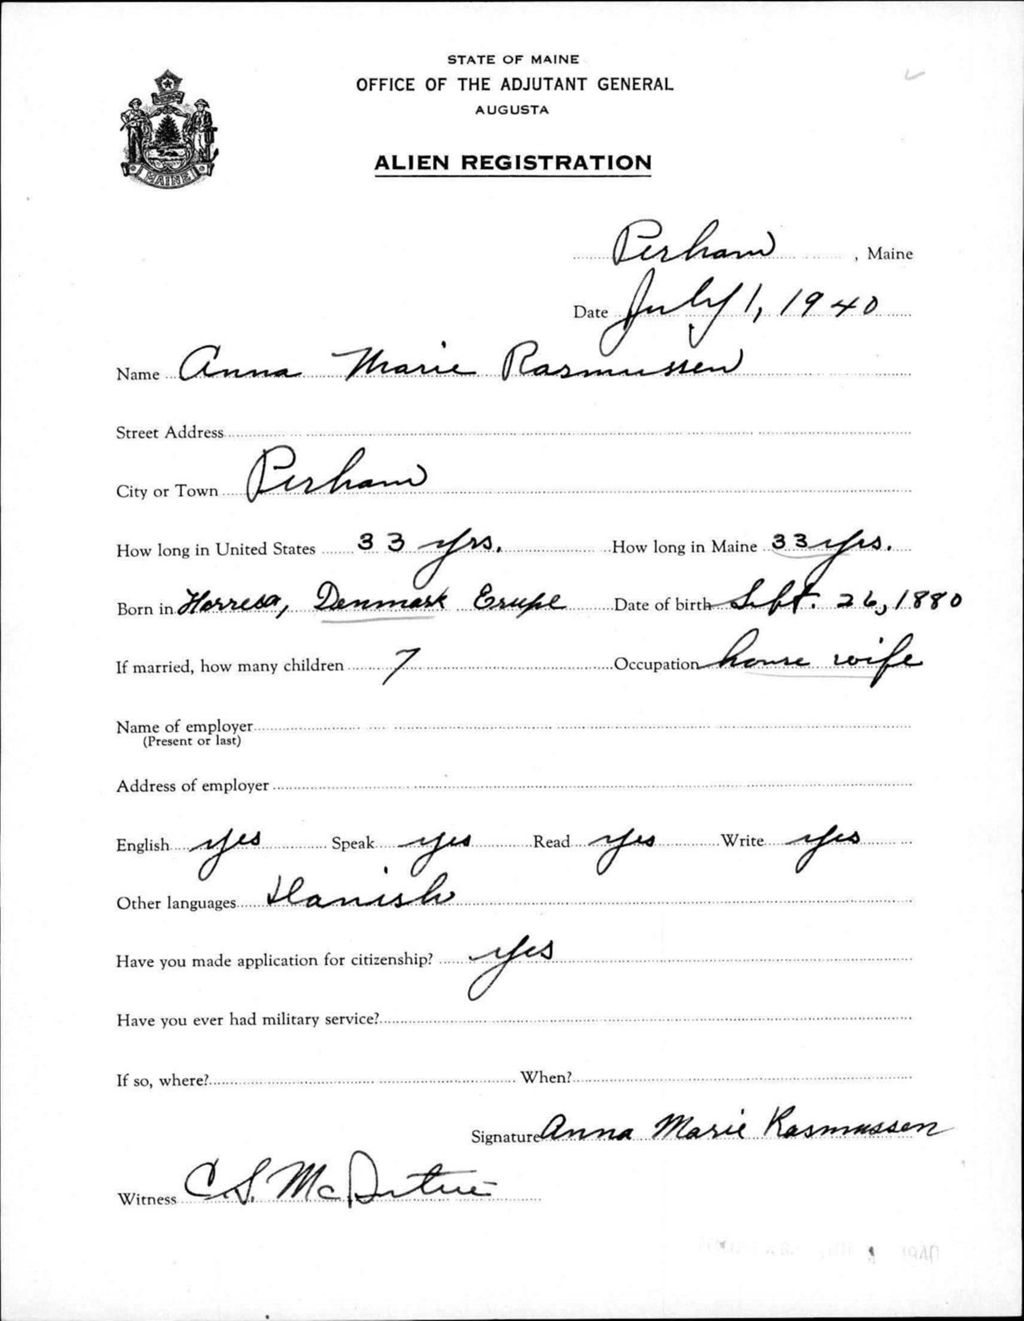 STATE OF MAINE
OFFICE OF THE ADJUTANT GENERAL
AUGUSTA
ALIEN REGISTRATION
MAINE
Perham, Maine
Date July 1, 1940
Name Anna Marie Rasmussen
Street Address
City or Town Perham
How long in United States 33 yrs. How long in Maine 33 yrs.
Born in Denmark Date of birth Sept. 26, 1880
If married, how many children 7 Occupation house wife
Name of employer
(Present or last)
Address of employer
English yes Speak yes Read yes Write yes
Other languages Danish
Have you made application for citizenship? yes
Have you ever had military service?
If so, where? When?
Signature Anna Marie Rasmussen
Witness C.S. 
1940